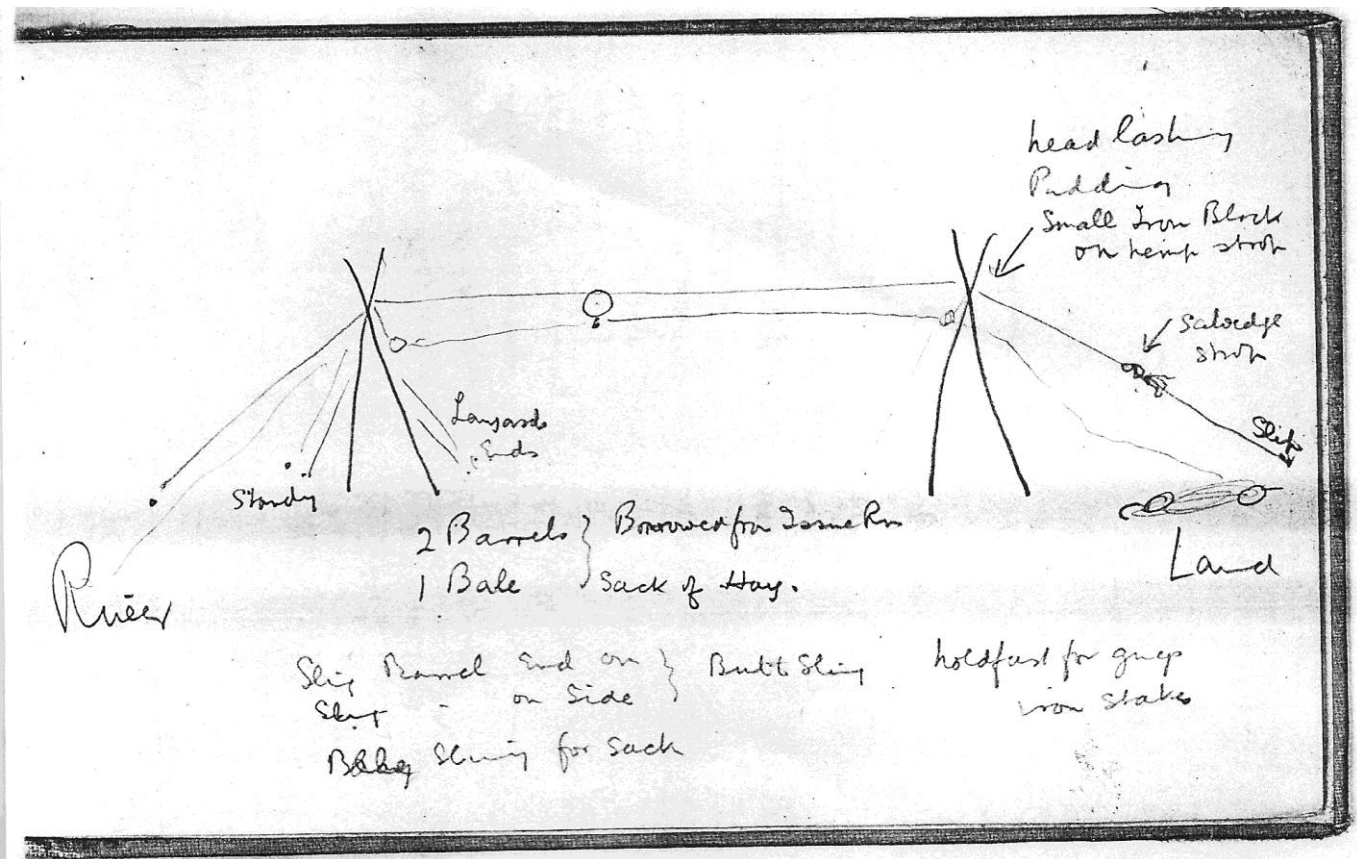 head lashing
Pudding
Small Iron Block
on hemp strop
salvedge
strop
Slip
Lanyards
Ends
Standg
2 Barrels } Borrowed from Issue Rm
1 Bale } Sack of Hay.
River
Land
Sling Barrel End on } Butt Sling
Sling " on Side }
Sling for Sack
holdfast for guys
iron stakes